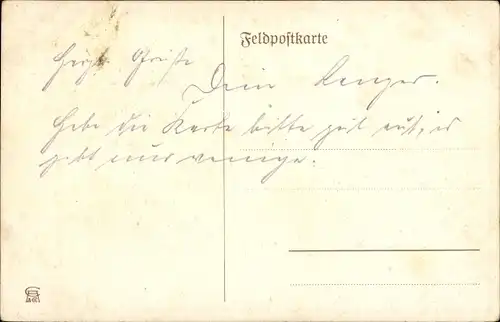 Feldpostkarte
Herzl. Grüße
Dein
Hebe die Karte bitte gut auf, es
gibt nur wenige.